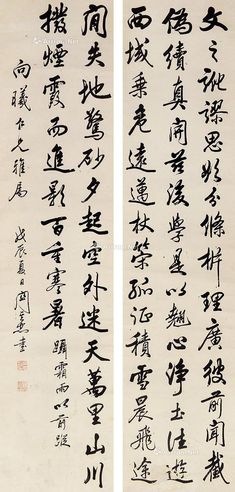 文之訛謬思欲分條析理廣彼前聞截
偽續真開茲後學是以翹心淨土法遊
西域乘危遠邁杖策孤征積雪晨飛途
間失地驚砂夕起空外迷天萬里山川
撥煙霞而進影百重寒暑躡霜雨以前蹤
向曦仁兄雅属
戊辰夏日 書